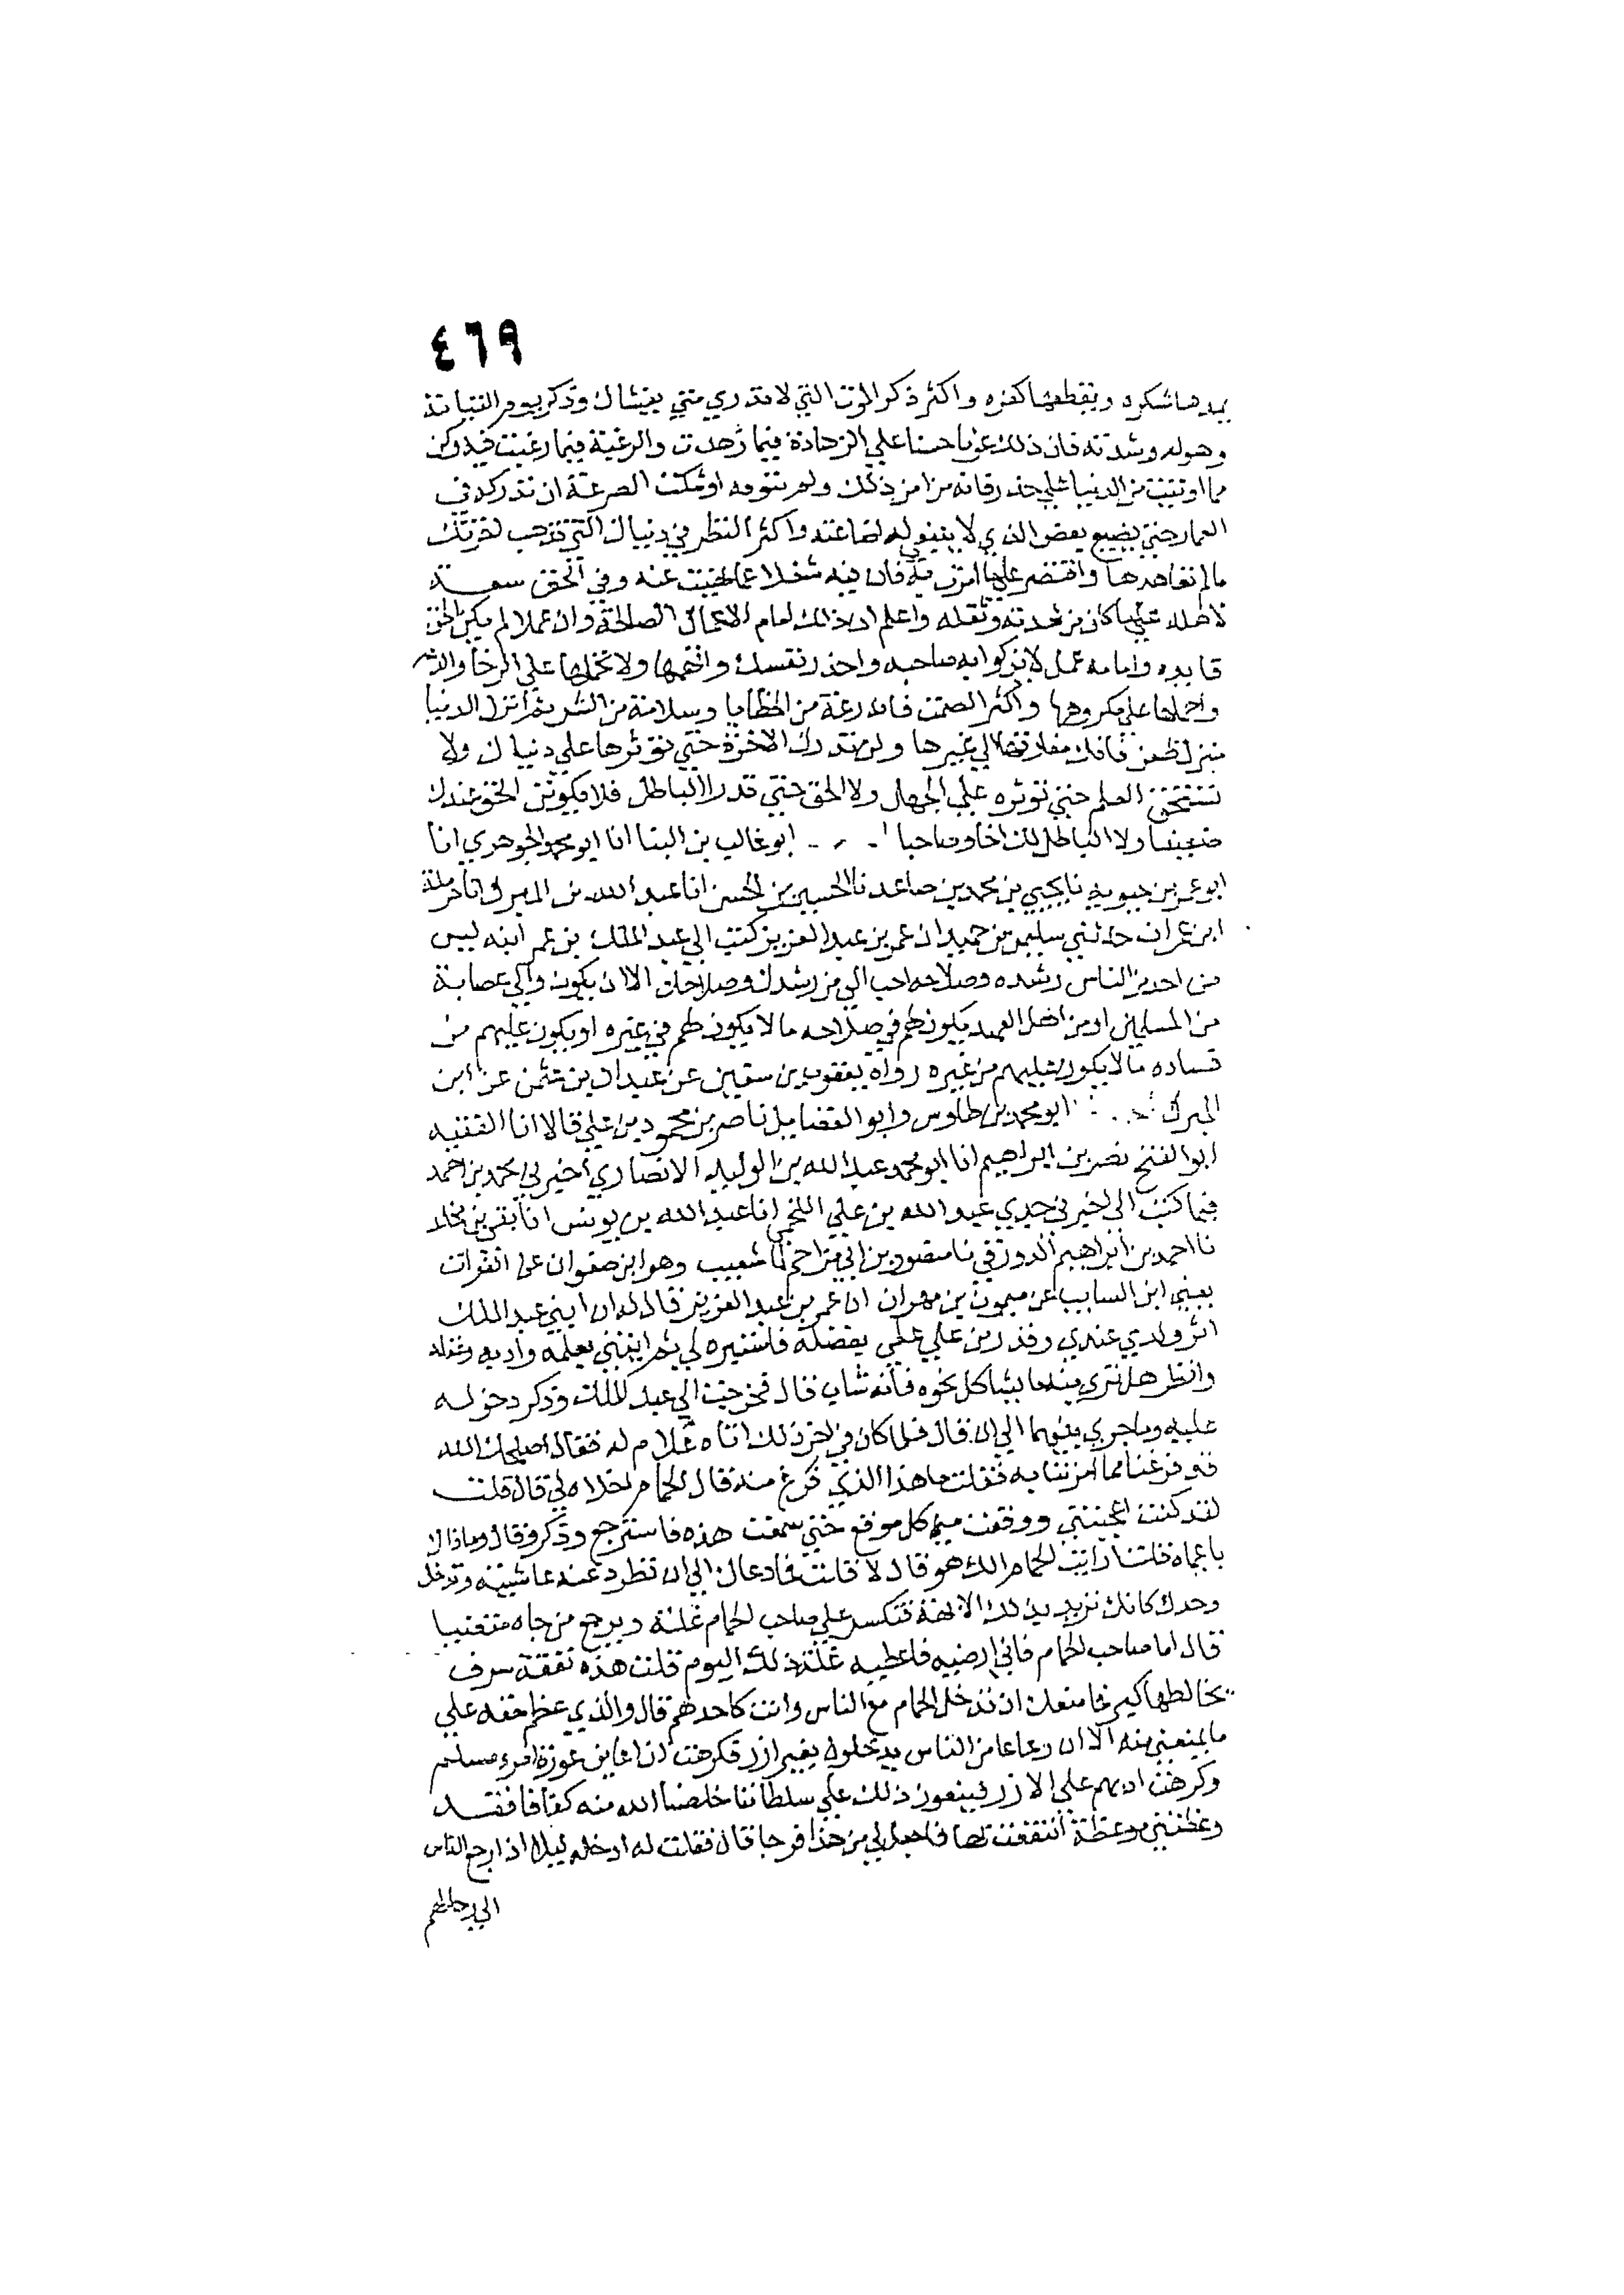 ٤٦٩
يمدها شكره ويقطعها كفره واكثر ذكر الموت الذي لا تدري متي يغشاك وتذكر يوم القيامة
وهوله وشدته فان ذلك عونا حسنا علي الزهادة فيما زهدت والرغبة فيما رغبت فيه وكن
مما اوتيت من الدنيا علي حذر فانه من امن ذلك ولم يتوقه اوشكت الصرعة ان تدركه في
واكثر النظر في دنياك
مالم تعاهدها واقتصر عليها فان فيه شغلا عما نهيت عنه وفي الحق سعة
لاهله علي ما كان من شدته وثقله واعلم ان ذلك امام الاعمال الصالحة وان عملا لم يكن الحق
قايده وامامه عمل لا يزكوا به صاحبه واحذر نفسك واتهمها ولا تحملها علي الرخا والاشر
واحملها علي مكروهها واكثر الصمت فانه دعة من الخطايا وسلامة من الشر ثم انزل الدنيا
منزل ظعن فانك مفارقها الي غيرها ولن تدرك الاخرة حتي توثرها علي دنياك ولا
تستحق العلم حتي توثره علي الجهل ولا الحق حتي تذر الباطل فلا يكونن الحق عندك
ضعيفا ولا الباطل لك اخا وصاحبا ابو غالب بن البنا انا ابو محمد الجوهري انا
ابو عمر بن حيويه نا يحيي بن محمد بن صاعد نا الحسين بن الحسن انا عبد الله بن المبرك انا حرملة
ابن عمران حدثني سليمن بن حميد ان عمر بن عبد العزيز كتب الي عبد الملك بن عمر ابنه ليس
من احد من الناس رشده وصلاحه احب الي من رشدك وصلاحك الا ان يكون والي عصابة
من المسلمين او من اهل العهد يكون لهم في صلاحه ما لا يكون لهم في غيره او يكون عليهم من
فساده ما لا يكون عليهم من غيره رواه يعقوب بن سفين عن عبدان بن عثمن عن ابن
المبرك ابو محمد بن طاوس وابو الفضايل ناصر بن محمود بن علي قالا انا الفقيه
ابو الفتح نصر بن ابراهيم انا ابو محمد عبد الله بن الوليد الانصاري اخبرني محمد بن احمد
فيما كتب الي اخبرني جدي عبد الله بن علي اللخمي انا عبد الله بن يونس انا بقي بن مخلد
نا احمد بن ابراهيم الدورقي نا منصور بن ابي مزاحم نا شعيب وهو ابن صفوان عن الفرات
يعني ابن السايب عن ميمون بن مهران ان عمر بن عبد العزيز قال له ان ابني عبد الملك
اثر ولدي عندي وقد زين علي علمي بفضله فاستبره لي ثم ايتني بعلمه وادبه وعقله
وانظر هل تري منه ما يشاكل نحوه فانه شاب قال فخرجت الي عبد الملك وذكر دخوله
عليه وما جري بينهما الي ان قال فلما كان في اخر ذلك اتاه غلام له فقال اصلحك الله
قد فرغنا مما امرتنا به فقلت ما هذا الذي فرغ منه قال الحمام اخلاه لي قال قلت
لقد كنت اعجبتني ووقعت مني كل موقع حتي سمعت هذه فاسترجع وذكر وقال وما ذاك
يا عماه قلت ارايت الحمام الك هو قال لا قلت فما دعاك الي ان تطرد عنه غاشيته وتدخل
وحدك كانك تريد بذلك الابهة فتكسر علي صاحب الحمام غلته ويرجع من جاه متعنيا
قال اما صاحب الحمام فاني ارضيه فاعطيه غلة ذلك اليوم قلت هذه نفقة سرف
يخالطها كبر فما منعك ان تدخل الحمام مع الناس وانت كاحدهم قال والذي عظم حقه علي
ما يمنعني منه الا ان رعاعا من الناس يدخلون بغير ازر فكرهت ان اعاين عورة امرء مسلم
وكرهت ادبهم علي الازر فيضعون ذلك علي سلطاننا خلصنا الله منه كفافا فقد
وعظتني موعظة انتفعت بها فاجعل لي من هذا فرجا قال فقلت له ادخله ليلا اذا رجع الناس
الي رحالهم